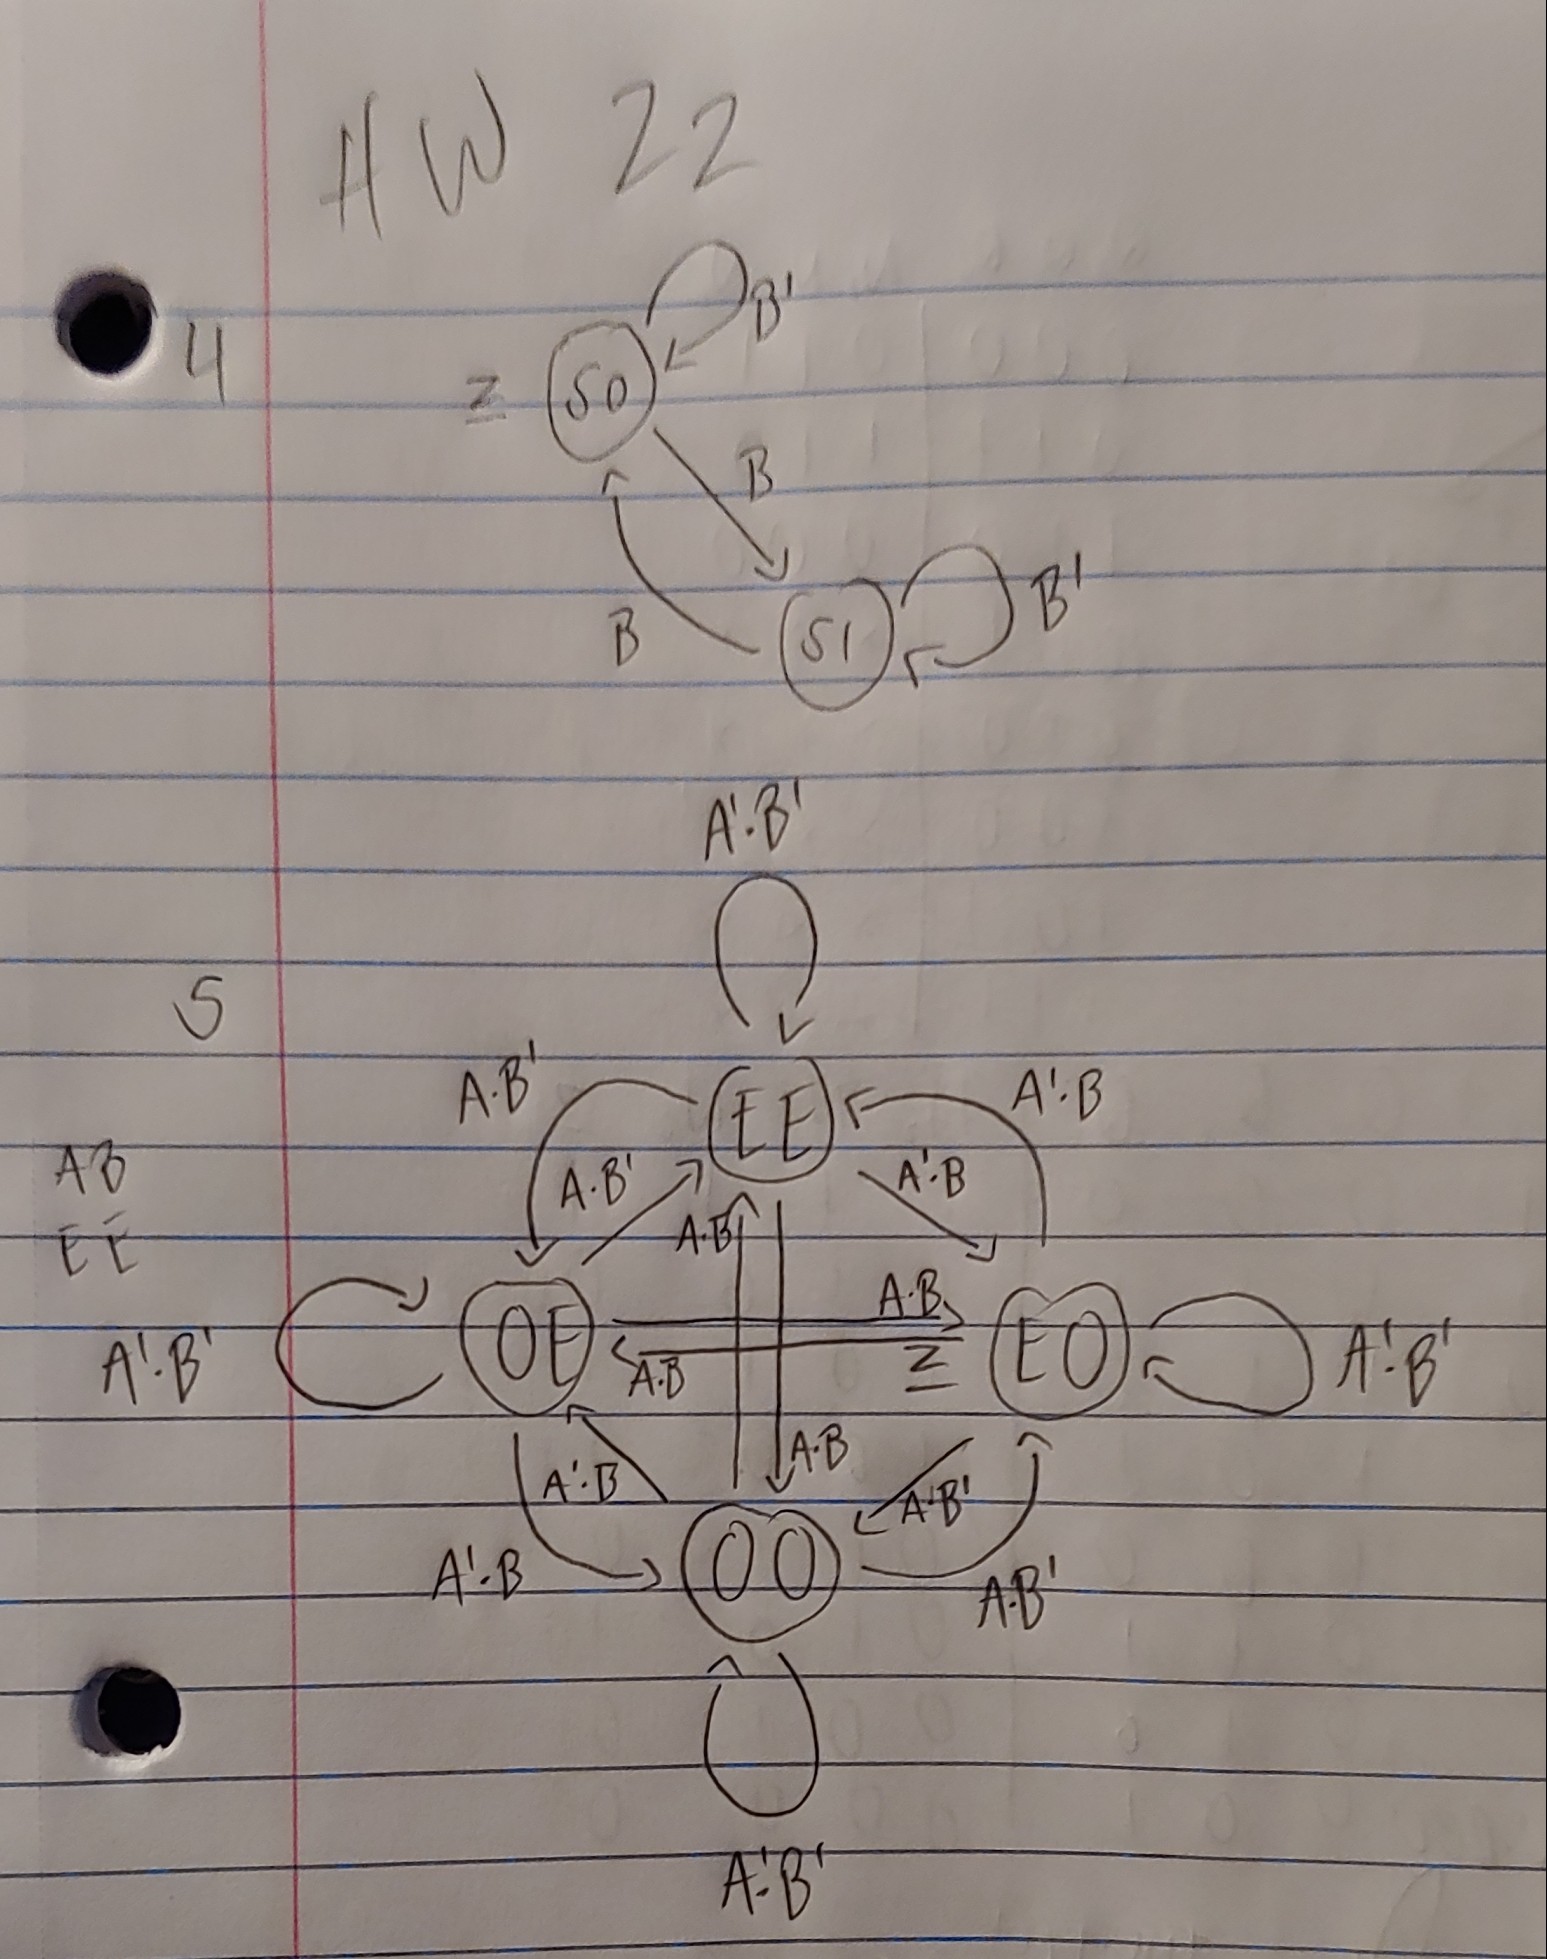 HW 22
4
B'
Z S0
B
B S1 B'
A'·B'
5
A·B' EE A'·B
AB A·B' A'·B
EE A·B
A'·B' OE A·B EO A'·B'
A·B Z
A·B
A'·B
A'·B OO A·B'
A'·B'